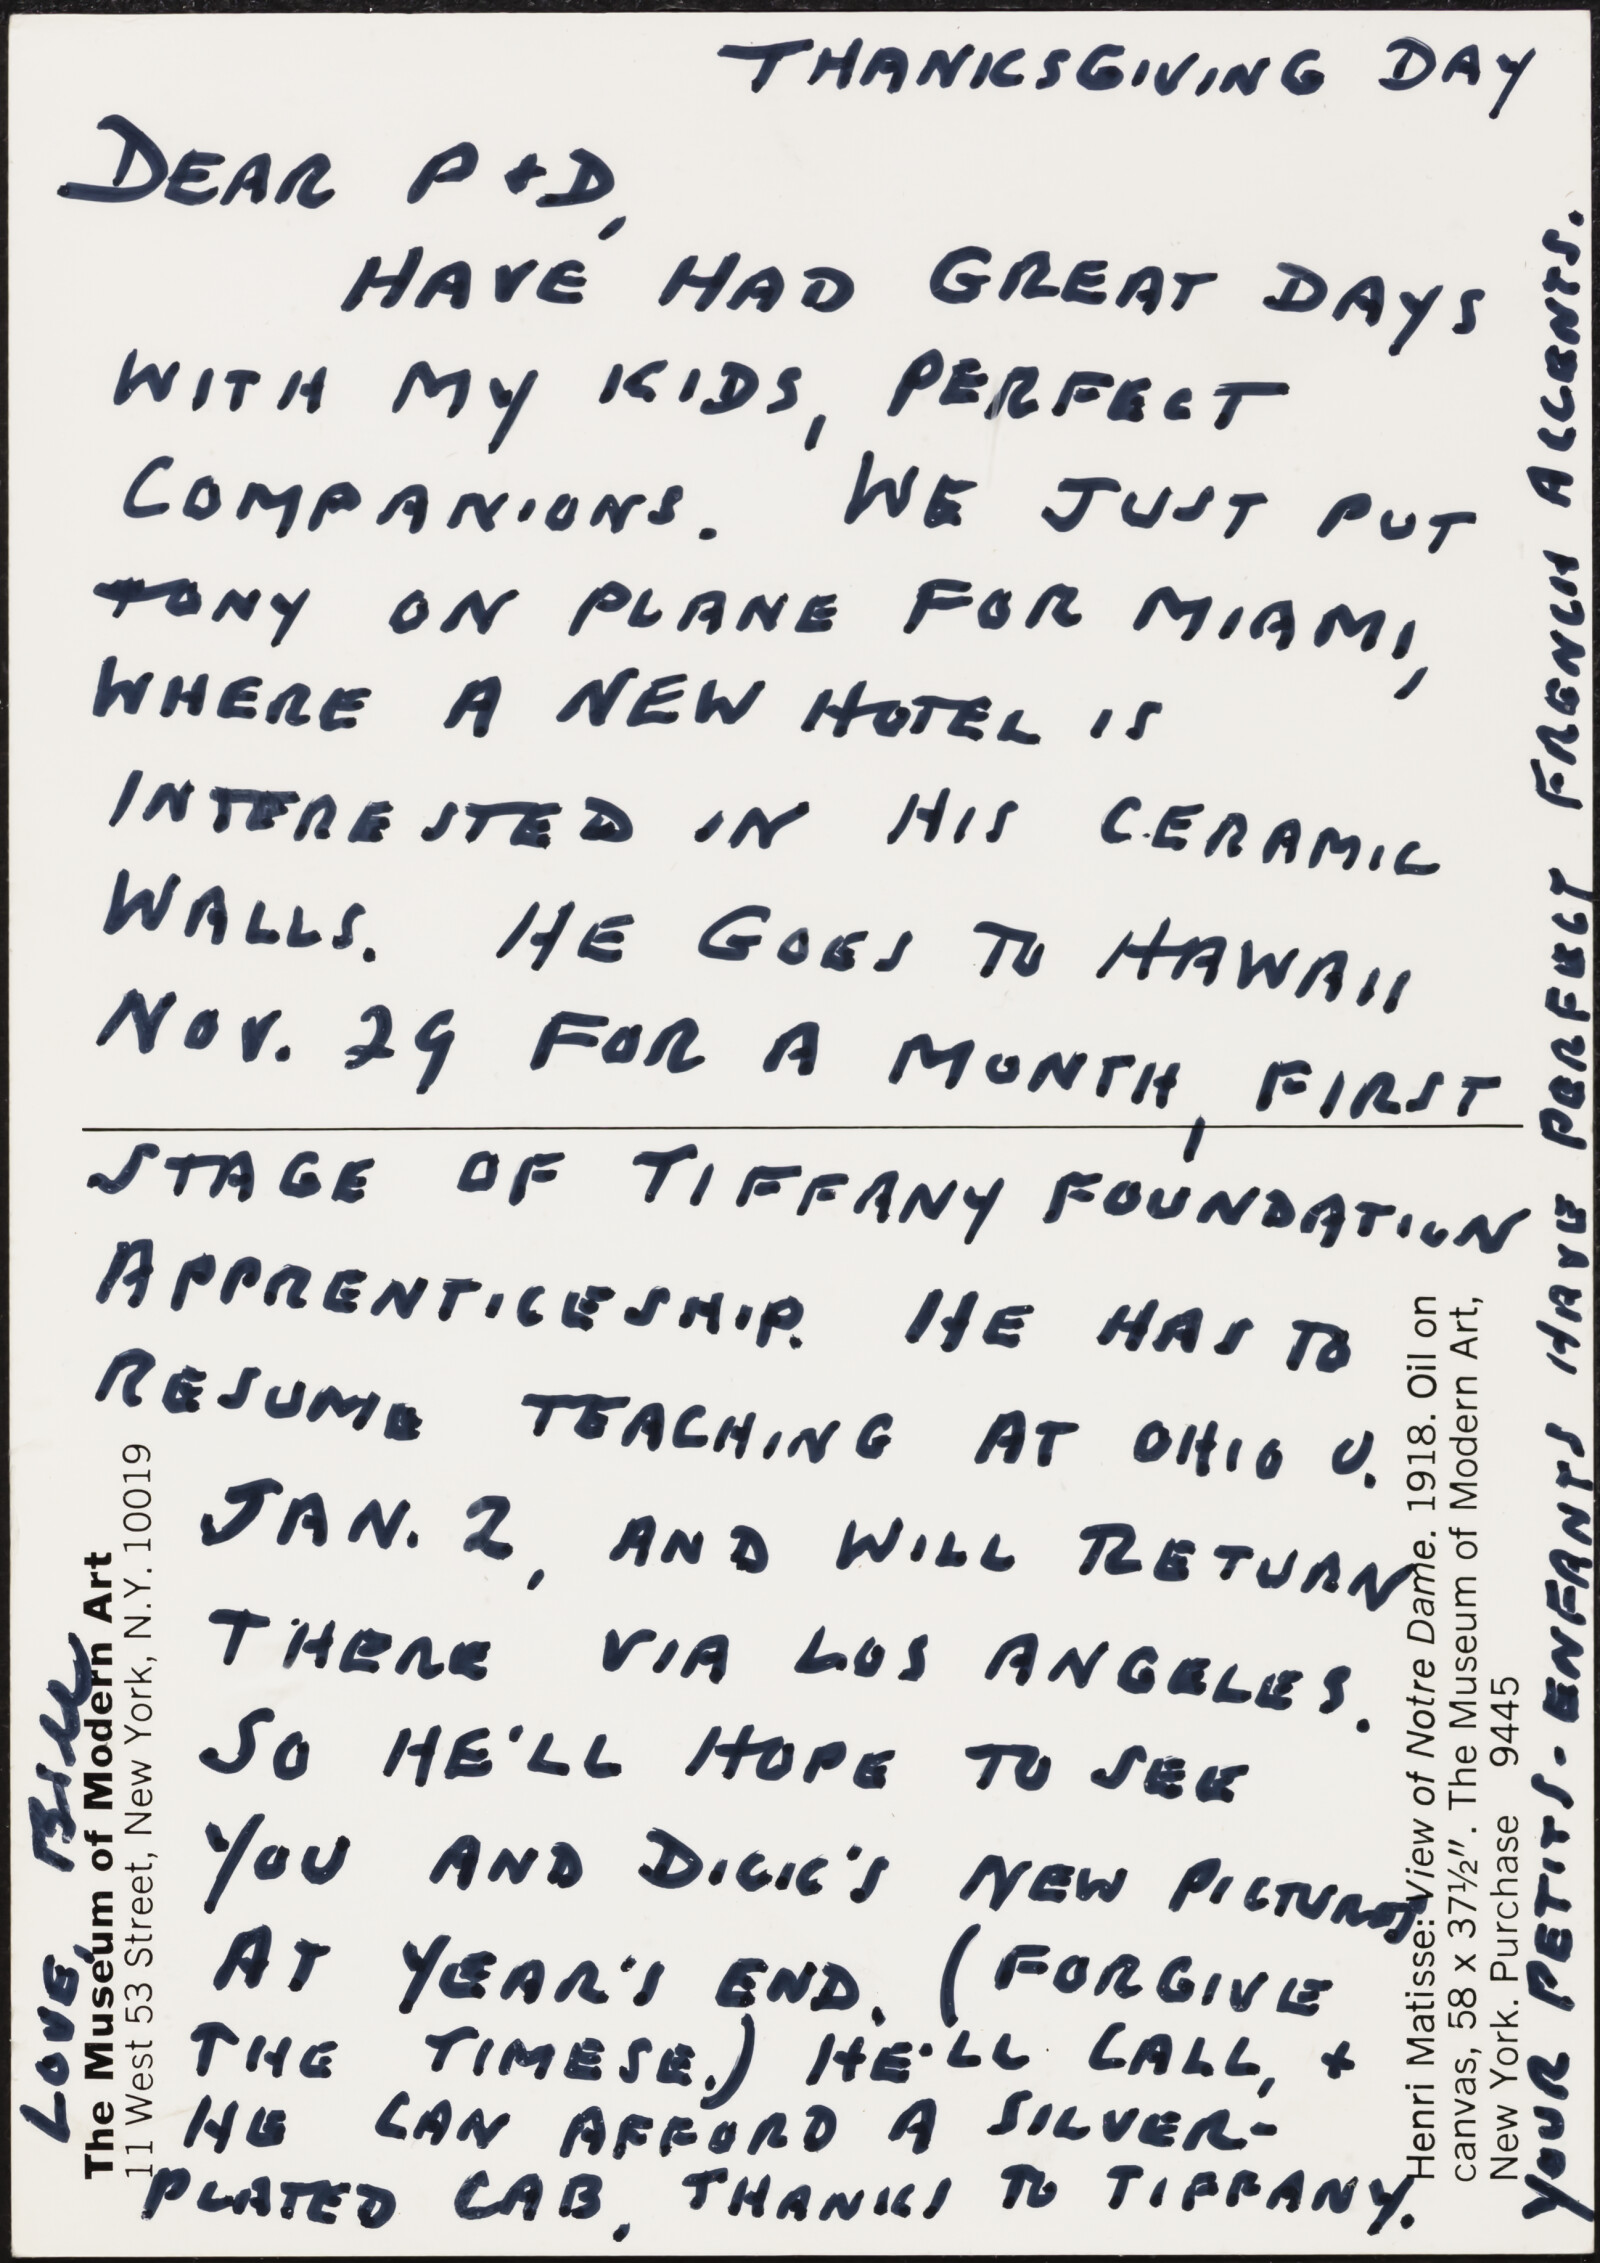 THANKSGIVING DAY
DEAR P + D,
HAVE HAD GREAT DAYS
WITH MY KIDS, PERFECT
COMPANIONS. WE JUST PUT
TONY ON PLANE FOR MIAMI,
WHERE A NEW HOTEL IS
INTERESTED IN HIS CERAMIC
WALLS. HE GOES TO HAWAII
NOV. 29 FOR A MONTH, FIRST
STAGE OF TIFFANY FOUNDATION
APPRENTICESHIP. HE HAS TO
RESUME TEACHING AT OHIO U.
JAN. 2, AND WILL RETURN
THERE VIA LOS ANGELES.
SO HE'LL HOPE TO SEE
YOU AND DICK'S NEW PICTURES
AT YEAR'S END. (FORGIVE
THE TIMESE.) HE'LL CALL, +
HE CAN AFFORD A SILVER-
PLATED CAB, THANKS TO TIFFANY.
YOUR PETITS-ENFANTS HAVE PERFECT FRENCH ACCENTS.
LOVE, BILL
The Museum of Modern Art
11 West 53 Street, New York, N.Y. 10019
Henri Matisse: View of Notre Dame. 1918. Oil on
canvas, 58 x 37½". The Museum of Modern Art,
New York. Purchase 9445